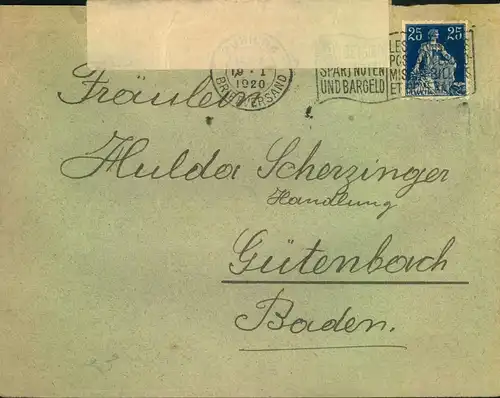 25 25
19·I
1920
BRIEFVERSAND
SPART NOTEN
UND BARGELD
LES
Fräulein
Hulda Scherzinger
Handlung
Gütenbach
Baden.